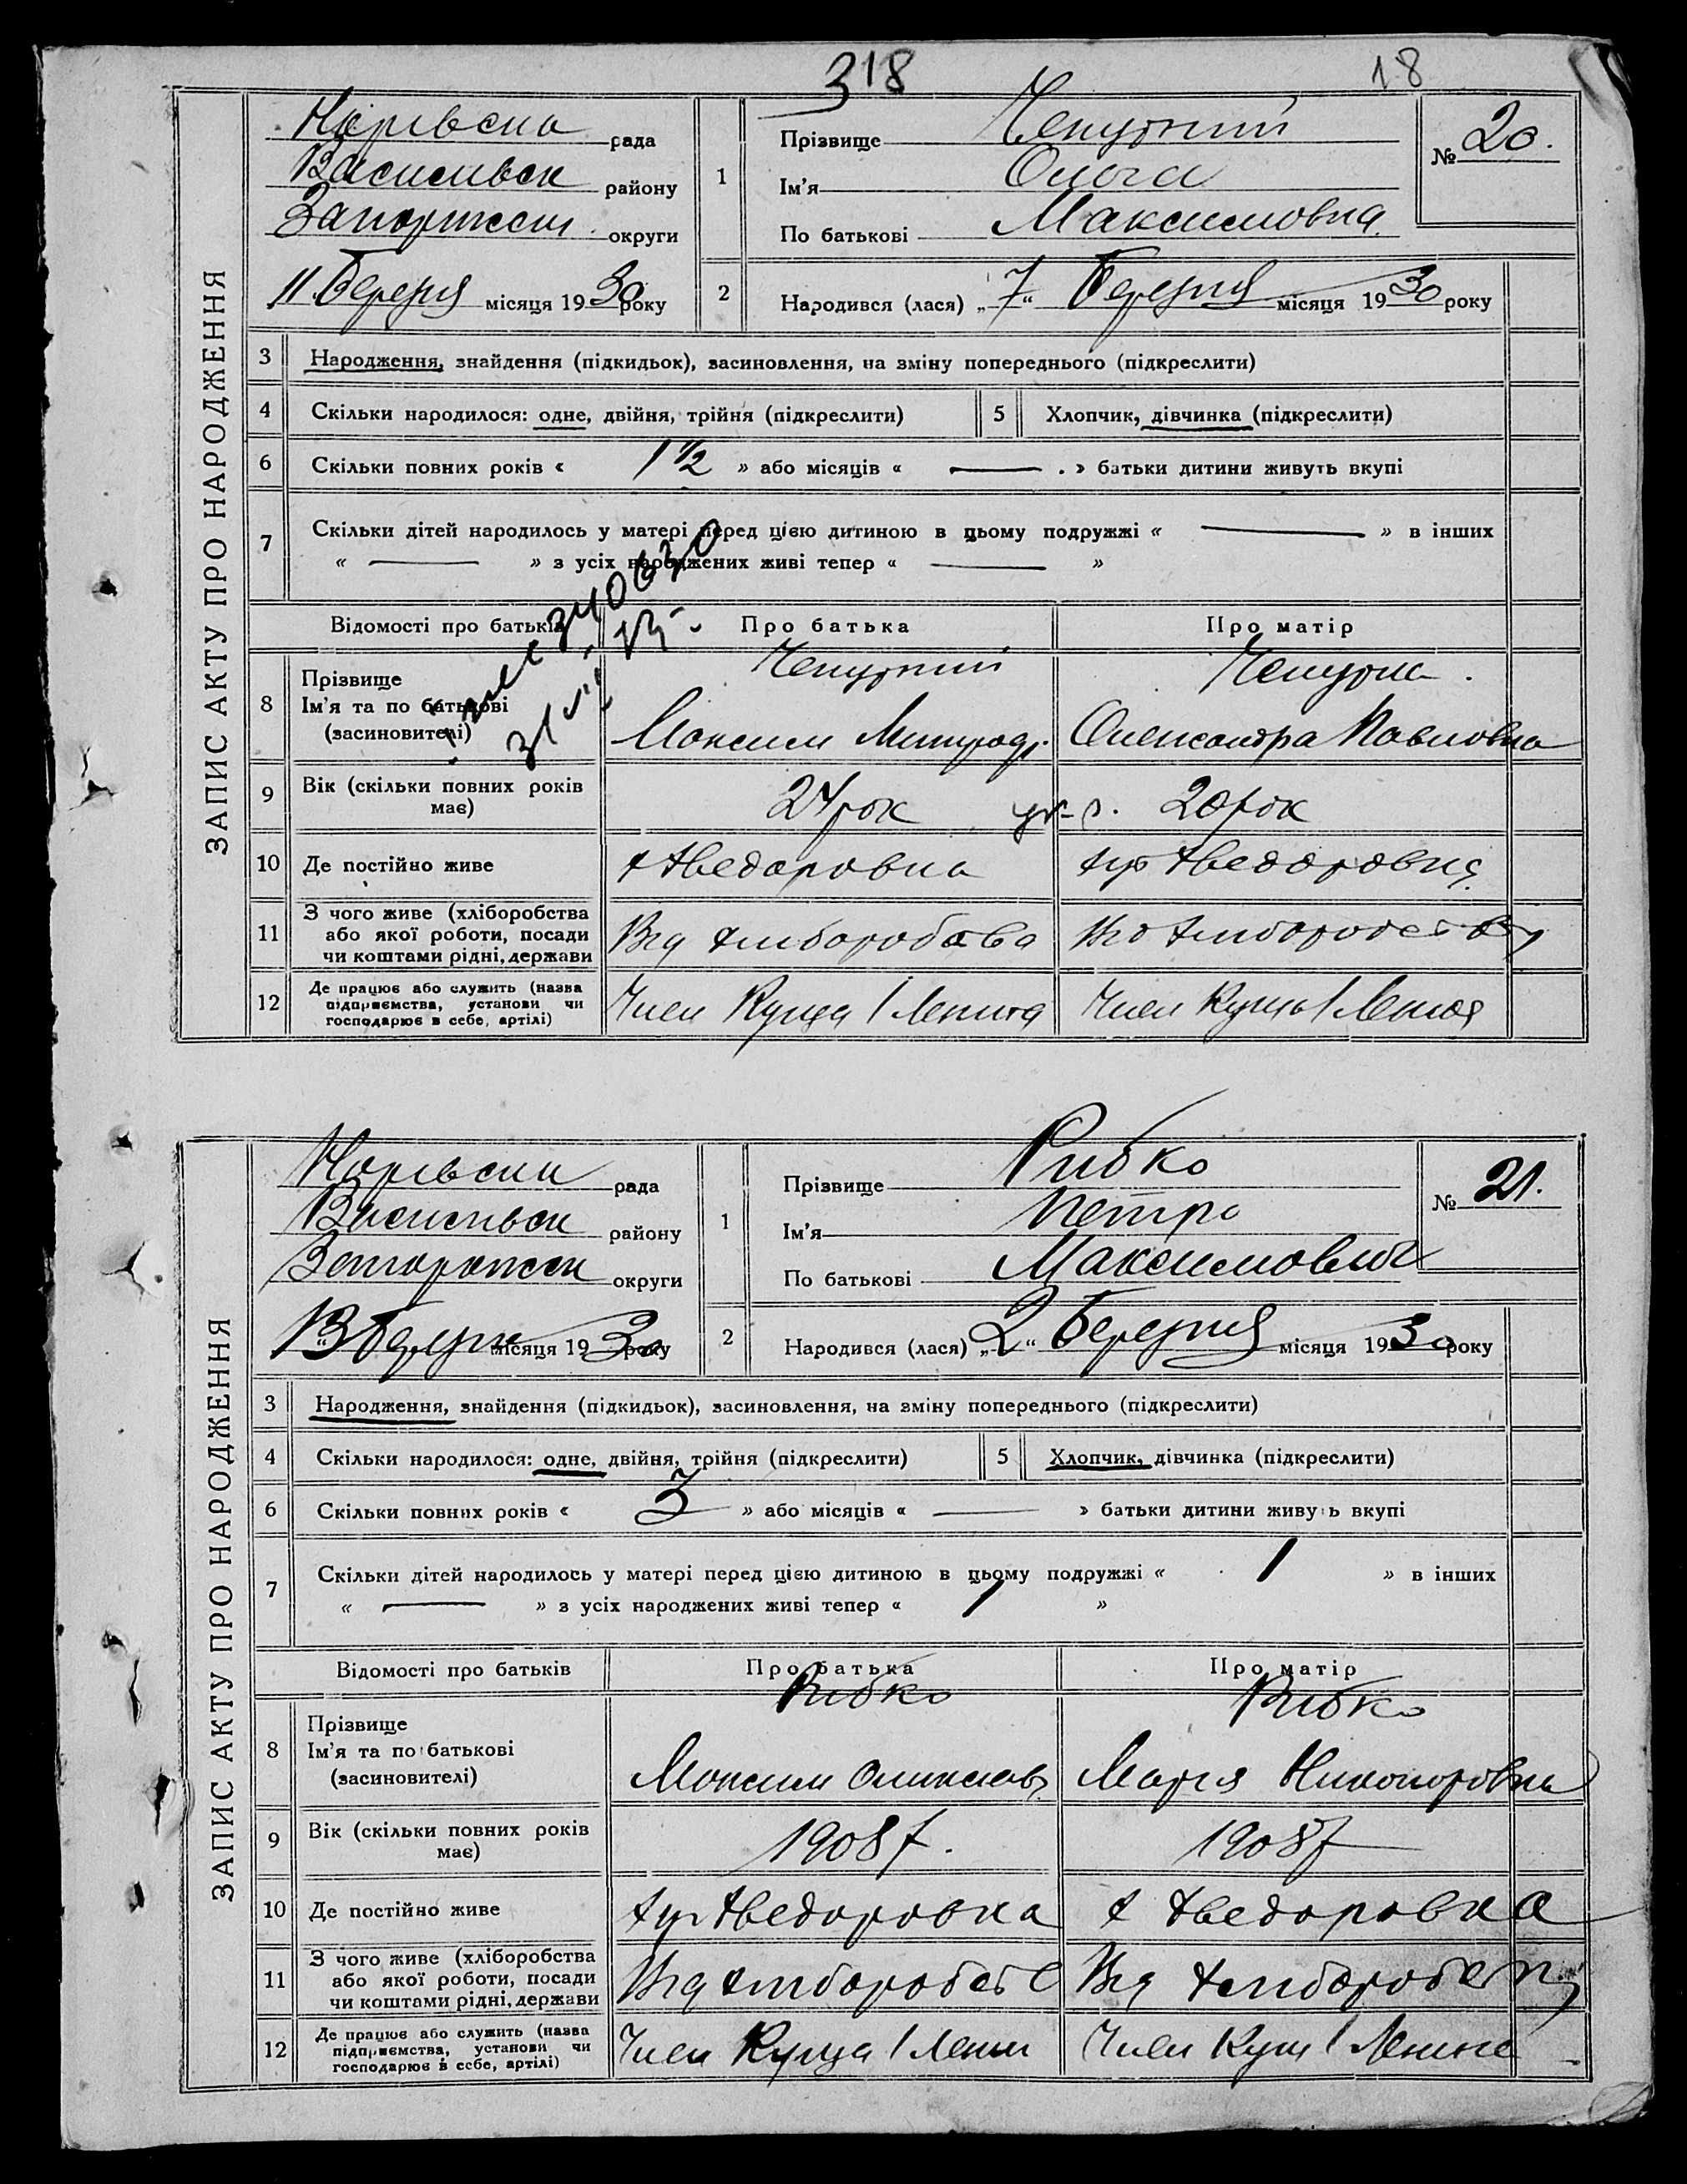 318
18
ЗАПИС АКТУ ПРО НАРОДЖЕННЯ
рада
Васильвск району
округи
11 Березня місяця 1930 року
1
Прізвище Чепурний
Ім'я Ольга
По батькові Максимовна
№ 20.
2
Народився (лася) „7“ Березня місяця 1930 року
3 Народження, знайдення (підкидьок), засиновлення, на зміну попереднього (підкреслити)
4 Скільки народилося: одне, двійня, трійня (підкреслити)
5 Хлопчик, дівчинка (підкреслити)
6 Скільки повних років « 1 1/2 » або місяців « — » батьки дитини живуть вкупі
7 Скільки дітей народилось у матері перед цією дитиною в цьому подружжі « — » в інших
« — » з усіх народжених живі тепер « — »
Відомості про батьків
Про батька
Про матір
8 Прізвище
Ім'я та по батькові
(засиновителі)
Чепурний
Максим
Чепурна
Олександра Павловна
9 Вік (скільки повних років має)
24 рок
20 рок
10 Де постійно живе
х Аведоровка
хут Аведоровка
11 З чого живе (хліборобства
або якої роботи, посади
чи коштами рідні, держави
Від хліборобства
Від
12 Де працює або служить (назва
підприємства, установи чи
господарює в себе, артілі)
Член Куща Леніна
Член Леніна
ЗАПИС АКТУ ПРО НАРОДЖЕННЯ
рада
Васильвск району
округи
13 місяця 1930 року
1
Прізвище Рибко
Ім'я Петро
По батькові Максимович
№ 21.
2
Народився (лася) „2“ Березня місяця 1930 року
3 Народження, знайдення (підкидьок), засиновлення, на зміну попереднього (підкреслити)
4 Скільки народилося: одне, двійня, трійня (підкреслити)
5 Хлопчик, дівчинка (підкреслити)
6 Скільки повних років « 3 » або місяців « — » батьки дитини живуть вкупі
7 Скільки дітей народилось у матері перед цією дитиною в цьому подружжі « 1 » в інших
« — » з усіх народжених живі тепер « 1 »
Відомості про батьків
Про батька
Про матір
8 Прізвище
Ім'я та по батькові
(засиновителі)
Рибко
Максим
Рибко
Марія
9 Вік (скільки повних років має)
1908 р.
1908 р
10 Де постійно живе
хут Аведоровка
х Аведоровка
11 З чого живе (хліборобства
або якої роботи, посади
чи коштами рідні, держави
Від
Від
12 Де працює або служить (назва
підприємства, установи чи
господарює в себе, артілі)
Член Куща
Член Кущ Леніна